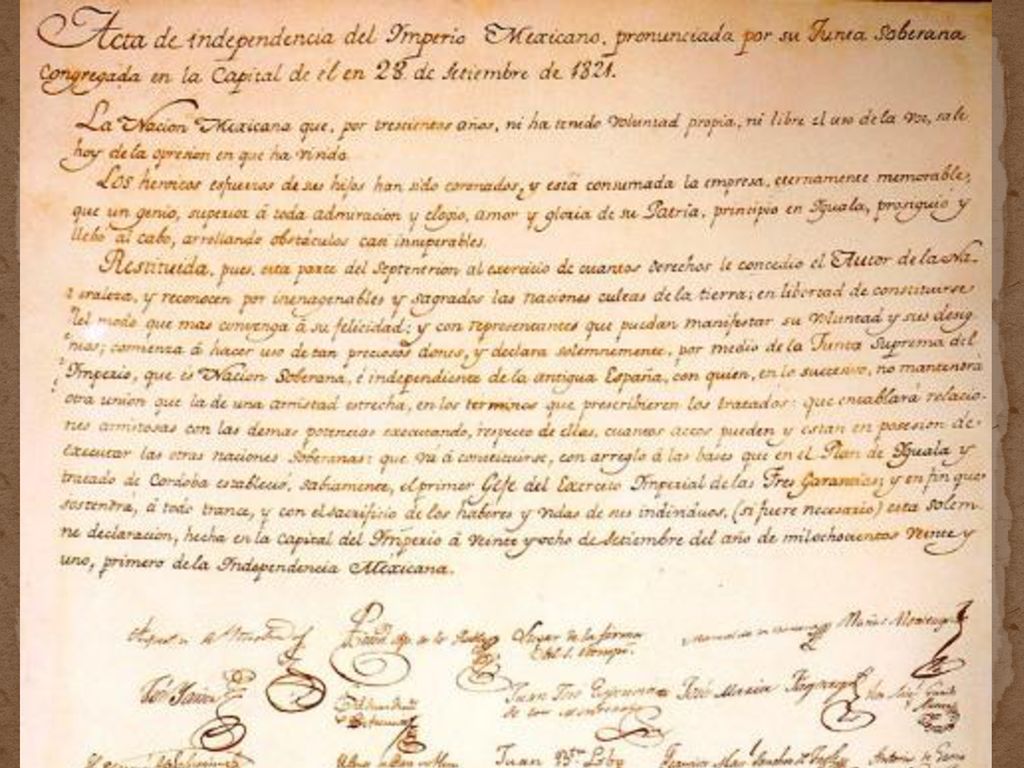 Acta de independencia del Imperio Mexicano, pronunciada por su Junta Soberana
congregada en la Capital de él en 28 de Setiembre de 1821.
La Nacion Mexicana que, por trescientos años, ni ha tenido voluntad propia, ni libre el uso de la voz, sale
hoy de la opresion en que ha vivido.
Los heroicos esfuerzos de sus hijos han sido coronados, y está consumada la empresa, eternamente memorable,
que un genio, superior á toda admiracion y elogio, amor y gloria de su Patria, principió en Iguala, prosiguió y
llebó al cabo, arrollando obstáculos casi insuperables.
Restituida, pues, esta parte del Septentrion al exercicio de cuantos derechos le concedió el Autor de la Na-
turaleza, y reconocen por inenagenables y sagrados las naciones cultas de la tierra; en libertad de constituirse
del modo que mas convenga á su felicidad; y con representantes que puedan manifestar su voluntad y sus desig-
nios; comienza á hacer uso de tan preciosos dones, y declara solemnemente, por medio de la Junta Suprema del
Imperio, que es Nacion Soberana, é independiente de la antigua España, con quien, en lo sucesivo, no mantendrá
otra union que la de una amistad estrecha, en los terminos que prescribieren los tratados: que entablará relacio-
nes amistosas con las demas potencias executando, respecto de ellas, cuantos actos pueden y estan en posesion de
executar las otras naciones soberanas: que va á constituirse, con arreglo á las bases que en el Plan de Iguala y
tratado de Córdoba estableció, sabiamente, el primer Gefe del Exercito Imperial de las Tres Garantias; y en fin que
sostendrá, á todo trance, y con el sacrificio de los haberes y vidas de sus individuos, (si fuere necesario) esta solem-
ne declaracion, hecha en la capital del Imperio á veinte y ocho de Setiembre del año de mil ochocientos veinte y
uno, primero de la Independencia Mexicana.
Lugar de la firma
Matias Monteagudo
José Yañez
Juan José Espinosa
José Maria Fagoaga
Juan Lobo